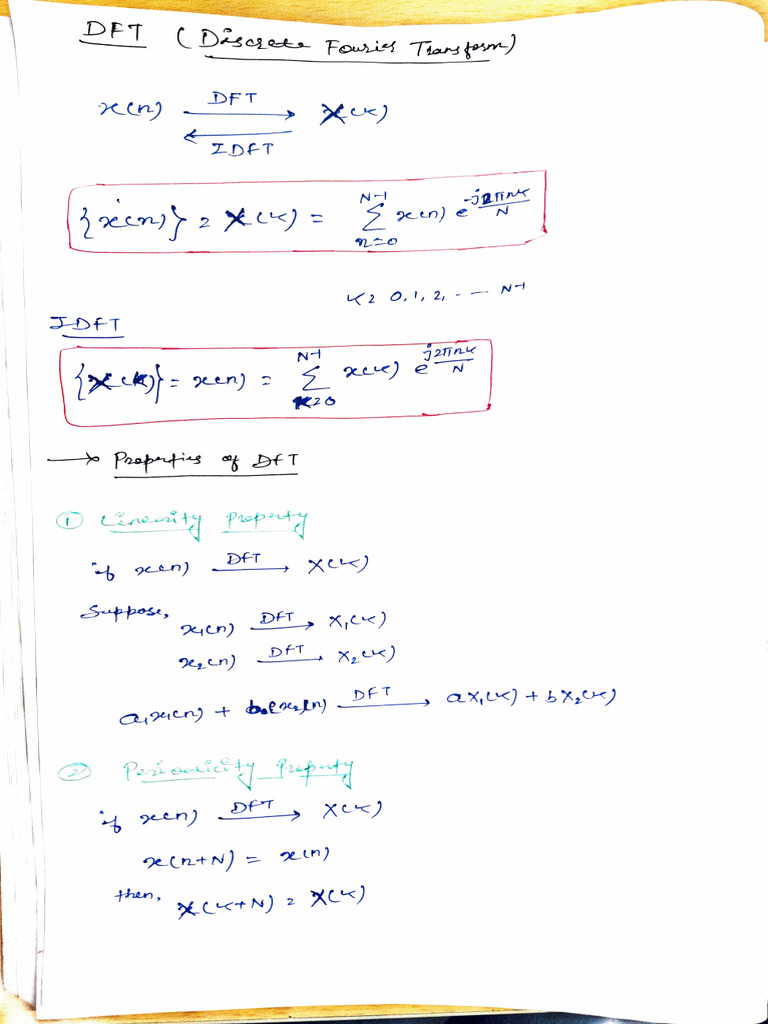 DFT (Discrete Fourier Transform)
x(n) DFT → X(k)
← IDFT
{x(n)} = X(k) = N-1 Σ n=0 x(n) e^(-j2πnk/N)
k = 0, 1, 2, ---- N-1
IDFT
{X(k)} = x(n) = N-1 Σ k=0 x(k) e^(j2πnk/N)
→ Properties of DFT
① Linearity Property
if x(n) DFT → X(k)
Suppose,
x₁(n) DFT → X₁(k)
x₂(n) DFT → X₂(k)
a₁x₁(n) + x₂(n) DFT → aX₁(k) + bX₂(k)
② Periodicity Property
if x(n) DFT → X(k)
x(n+N) = x(n)
then, X(k+N) = X(k)